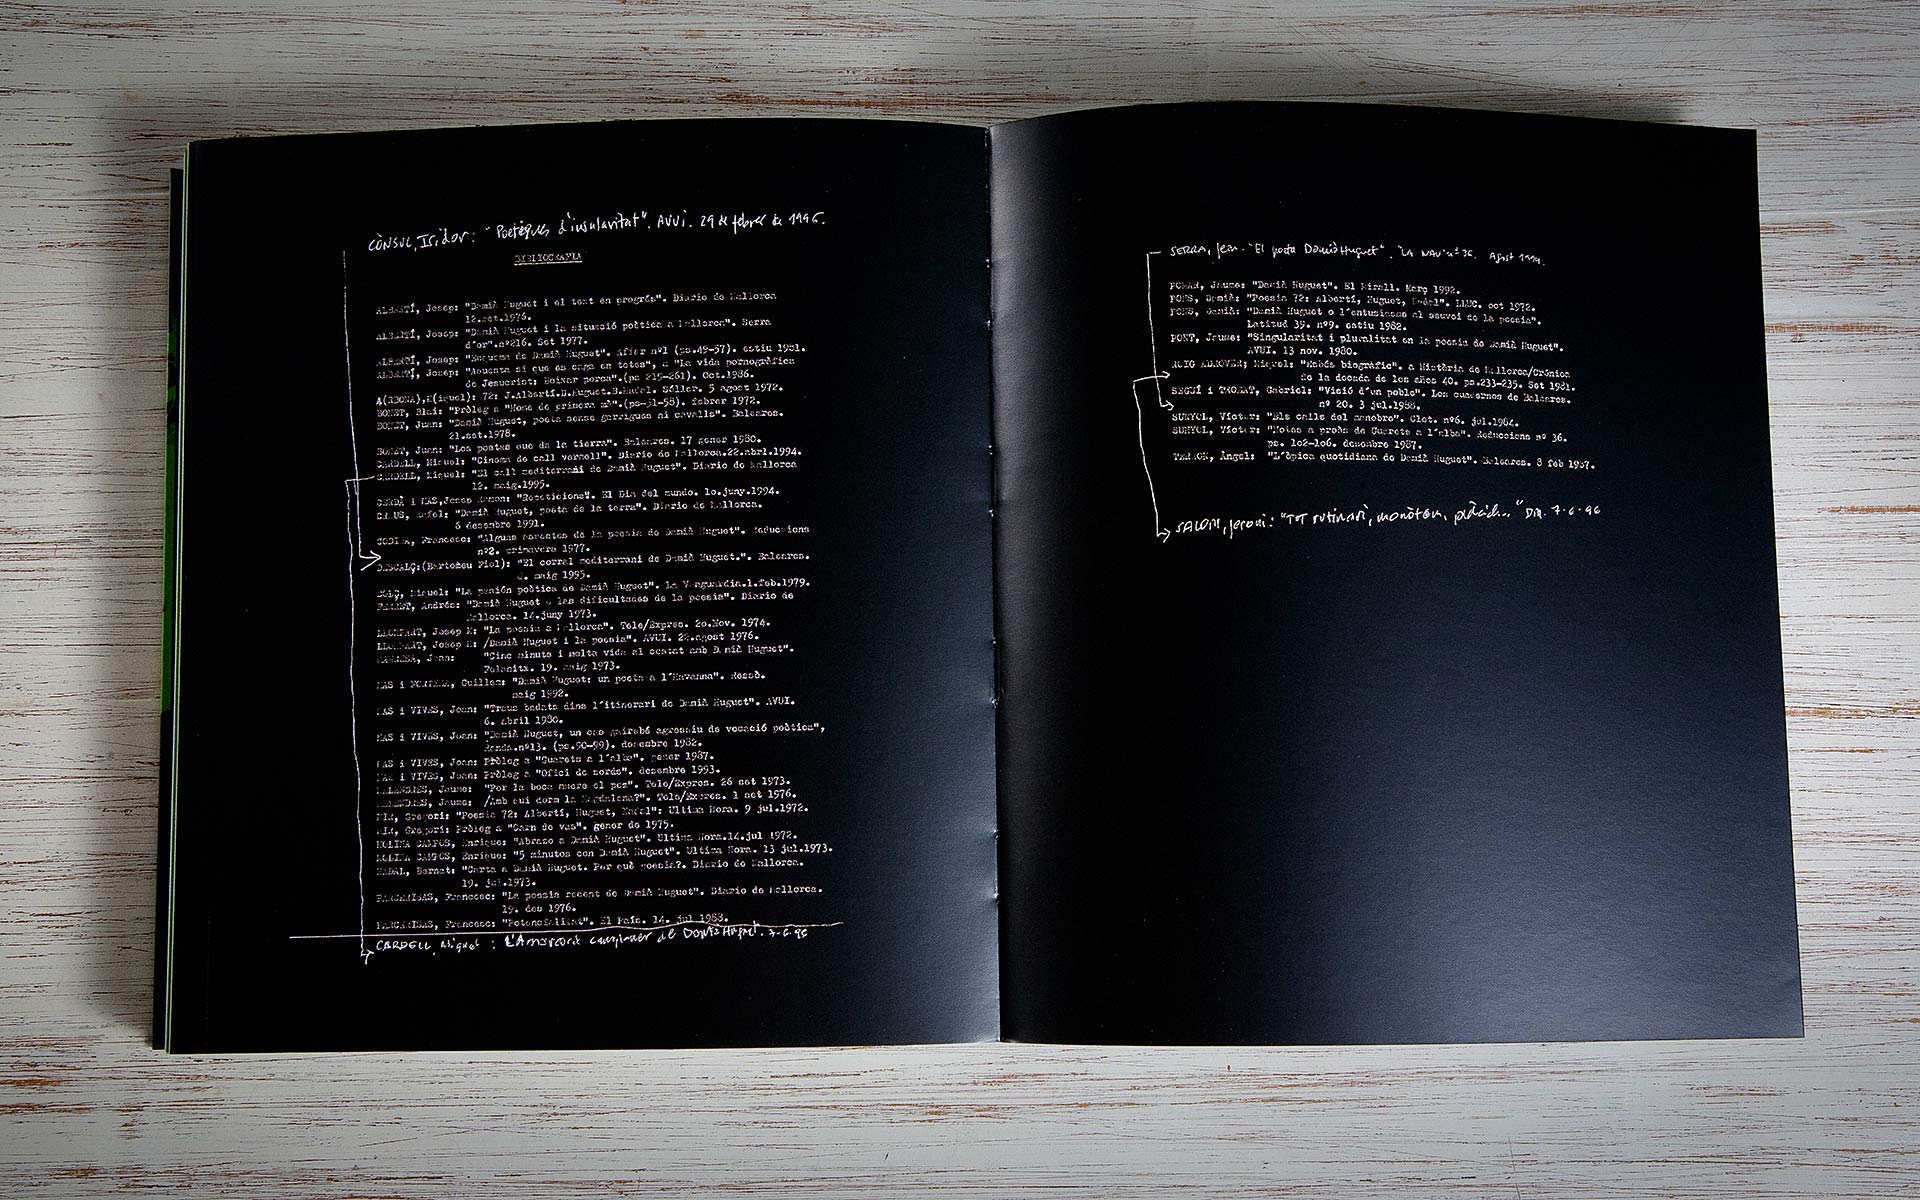 CÒNSUL, Isidor: "Poètiques d'insularitat". AVUI. 29 de febrer de 1996.
BIBLIOGRAFIA
ALBERTÍ, Josep: "Damià Huguet i el text en progrés". Diario de Mallorca
12.set.1976.
ALBERTÍ, Josep: "Damià Huguet i la situació poètica a Mallorca". Serra
d'or".nº216. Set 1977.
ALBERTÍ, Josep: "Esquema de Damià Huguet". Afier nº1 (ps.49-57). estiu 1981.
ALBERTÍ, Josep: "Aquesta si que es caga en totes", a "La vida pornogràfica
de Jesucrist: Boixar porca".(ps 215-261). Oct.1986.
A(RBONA),M(iquel): 72: J.Albertí.D.Huguet.B.Nadal. Sóller. 5 agost 1972.
BONET, Blai: "Pròleg a "Home de primera mà".(ps-31-58). febrer 1972.
BONET, Juan: "Damià Huguet, poeta sense garrigues ni cavalls". Baleares.
21.set.1978.
BONET, Juan: "Los poetas que da la tierra". Baleares. 17 gener 1980.
CARDELL, Miquel: "Cinema de call vermell". Diario de Mallorca.22.abrl.1994.
CARDELL, Miquel: "El call mediterrani de Damià Huguet". Diario de Mallorca
12. maig.1995.
CERDÀ i MAS,Josep Ramon: "Reposicions". El Dia del mundo. 10.juny.1994.
CALUS, Rafel: "Damià Huguet, poeta de la terra". Diario de Mallorca.
6 desembre 1991.
CODINA, Francesc: "Alguns aspectes de la poesia de Damià Huguet". Reduccions
nº2. primavera 1977.
DESCALÇ:(Bartomeu Fiol): "El corral mediterrani de Damià Huguet.". Baleares.
maig 1995.
DOLÇ, Miquel: "La passión poètica de Damià Huguet". La Vanguardia.1.feb.1979.
FERRET, Andrés: "Damià Huguet o las dificultades de la poesia". Diario de
Mallorca. 14.juny 1973.
LLOMPART, Josep M: "La poesia a Mallorca". Tele/Expres. 2o.Nov. 1974.
LLOMPART, Josep M: /Damià Huguet i la poesia". AVUI. 22.agost 1976.
Joan: "Cinc minuts i molta vida al costat amb Damià Huguet".
Felanitx. 19. maig 1973.
MAS i FORTEZA, Guillem: "Damià Huguet: un poeta a l'Havanna". Ressò.
maig 1992.
MAS i VIVES, Joan: "Traus badats dins l'itinerari de Damià Huguet". AVUI.
6. abril 1980.
MAS i VIVES, Joan: "Damià Huguet, un cas gairebé agressiu de vocació poètica",
Randa.nº13. (ps.90-99). desembre 1982.
MAS i VIVES, Joan: Pròleg a "Guarets a l'alba". gener 1987.
MAS i VIVES, Joan: Pròleg a "Ofici de sords". desembre 1993.
MELENDRES, Jaume: "Por la boca muere el pez". Tele/Expres. 26 set 1973.
MELENDRES, Jaume: /Amb qui dorm la Magdalena?". Tele/Expres. 1 set 1976.
MIR, Gregori: "Poesia 72: Albertí, Huguet, Nadal": Ultima Hora. 9 jul.1972.
MIR, Gregori: Pròleg a "Carn de vas". gener de 1975.
MOLINA CAMPOS, Enrique: "Abrazo a Damià Huguet". Ultima Hora.14.jul 1972.
MOLINA CAMPOS, Enrique: "5 minutos con Damià Huguet". Ultima Hora. 13 jul.1973.
NADAL, Bernat: "Carta a Damià Huguet. Per què poesia?. Diario de Mallorca.
19. jul.1973.
PARCERISAS, Francesc: "La poesia recent de Damià Huguet". Diario de Mallorca.
19. des 1976.
PARCERISAS, Francesc: "Potencialitat". El País. 14. jul 1988.
CARDELL, Miquel: L'Amarcord campaner de Damià Huguet. 7-6-96
SERRA, Jean. "El poeta Damià Huguet". "LA NAU" nº 36. Agost 1994.
POMAR, Jaume: "Damià Huguet". El Mirall. Març 1992.
PONS, Damià: "Poesia 72: Albertí, Huguet, Nadal". LLUC. oct 1972.
PONS, Damià: "Damià Huguet o l'entusiasme al servei de la poesia".
Latitud 39. nº9. estiu 1982.
PONT, Jaume: "Singularitat i pluralitat en la poesia de Damià Huguet".
AVUI. 13 nov. 1980.
PUIG ADROVER, Miquel: "Esbós biogràfic". a Història de Mallorca/Crónica
de la decada de los años 40. ps.233-235. Set 1981.
SEGUÍ i TROBAT, Gabriel: "Visió d'un poble". Los cuadernos de Baleares.
nº 20. 3 jul.1988.
SUNYOL, Víctor: "Els calls del manobre". Clot. nº6. jul.1984.
SUNYOL, Víctor: "Notes a propòs de Guarets a l'alba". Reduccions nº 36.
ps. 1o2-1o6. desembre 1987.
TERRON, Àngel: "L'èpica quotidiana de Damià Huguet". Baleares. 8 feb 1987.
SALOM, Jeroni: "Tot rutinari, monòton, plàcid..." DM. 7-6-96